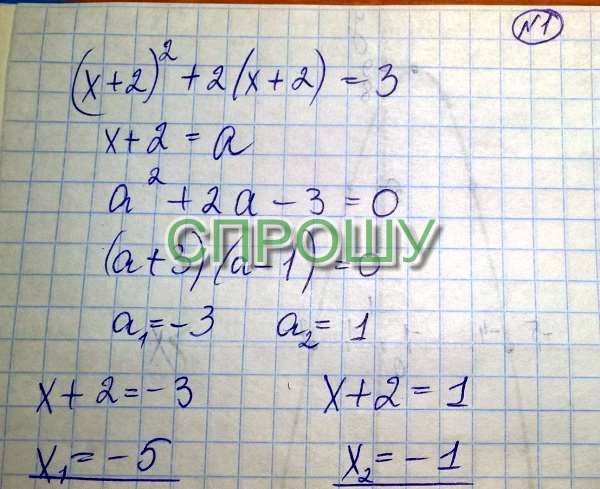 N1
(x+2)² + 2(x+2) = 3
x+2 = a
a² + 2a - 3 = 0
СПРОШУ
(a+3)(a-1) = 0
a₁ = -3 a₂ = 1
x+2 = -3 x+2 = 1
x₁ = -5 x₂ = -1